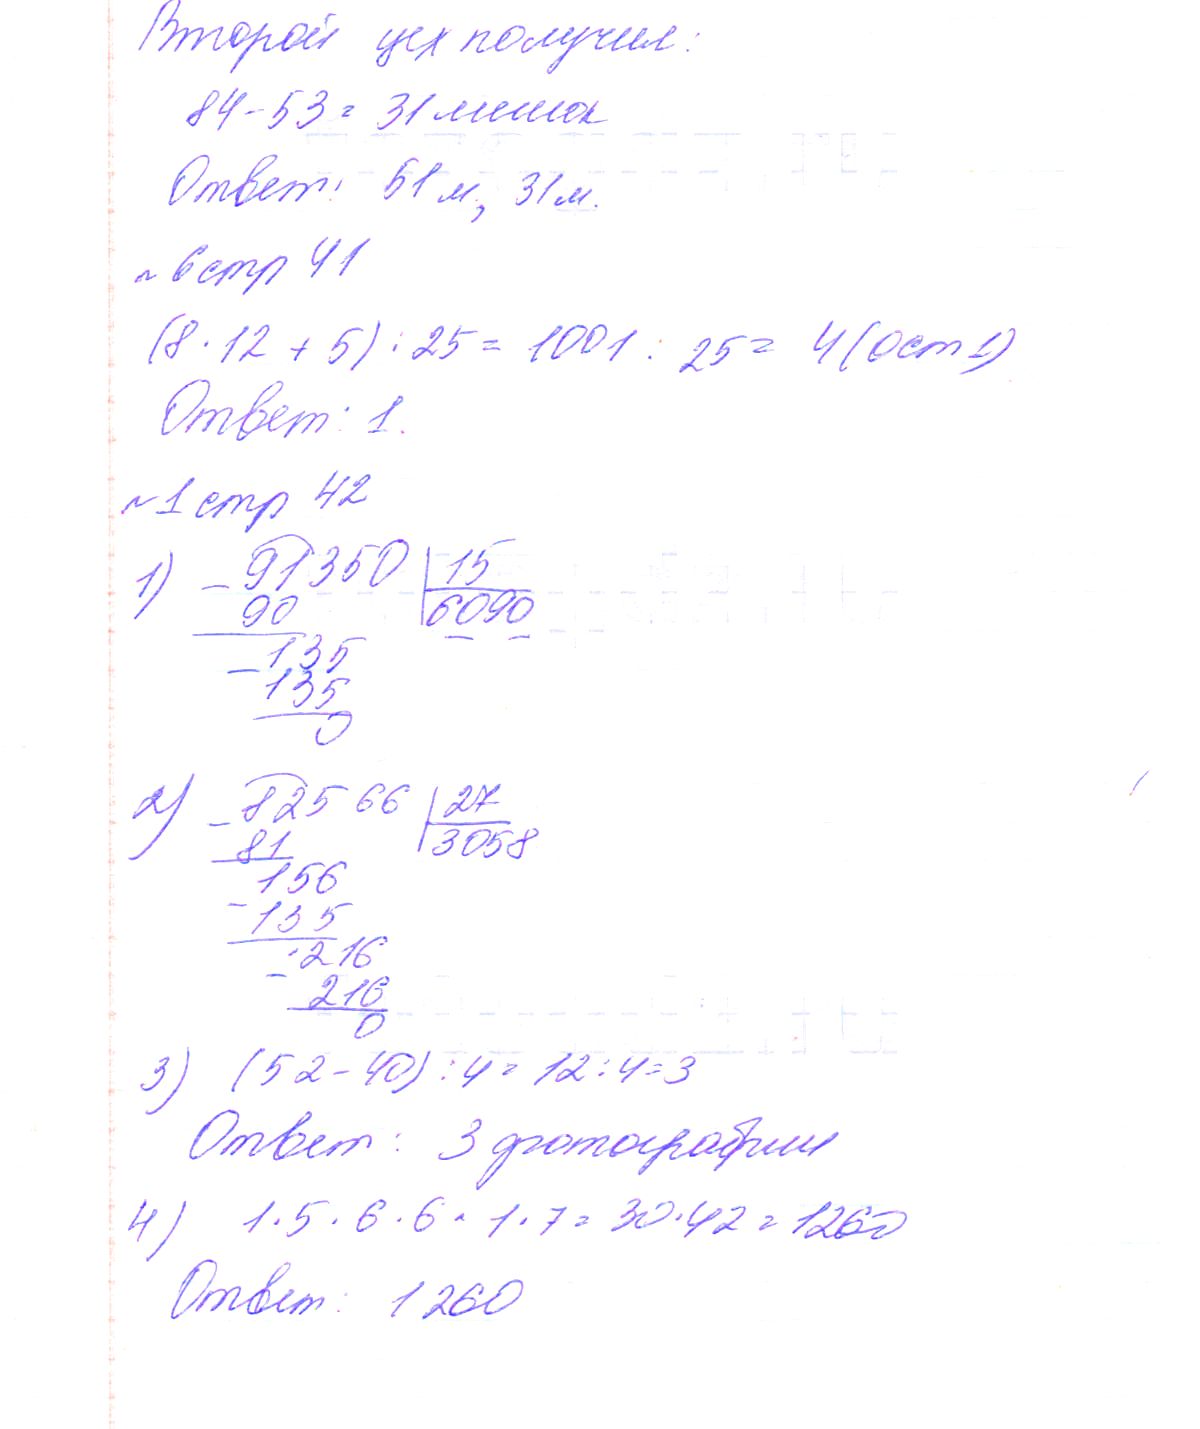 Второй цех получил:
84-53= 31 мешок
Ответ: 51м, 31м.
~ 6 стр 41
(8·12 + 5) : 25 = 1001 : 25 = 4 (ост 1)
Ответ: 1.
~ 1 стр 42
1) - 91350 | 15
90 6090
- 135
135
0
2) - 82566 | 27
81 3058
156
- 135
216
- 216
0
3) (52-40) : 4 = 12 : 4 = 3
Ответ: 3 фотографии
4) 1·5·6·6·1·7 = 30·42 = 1260
Ответ: 1260